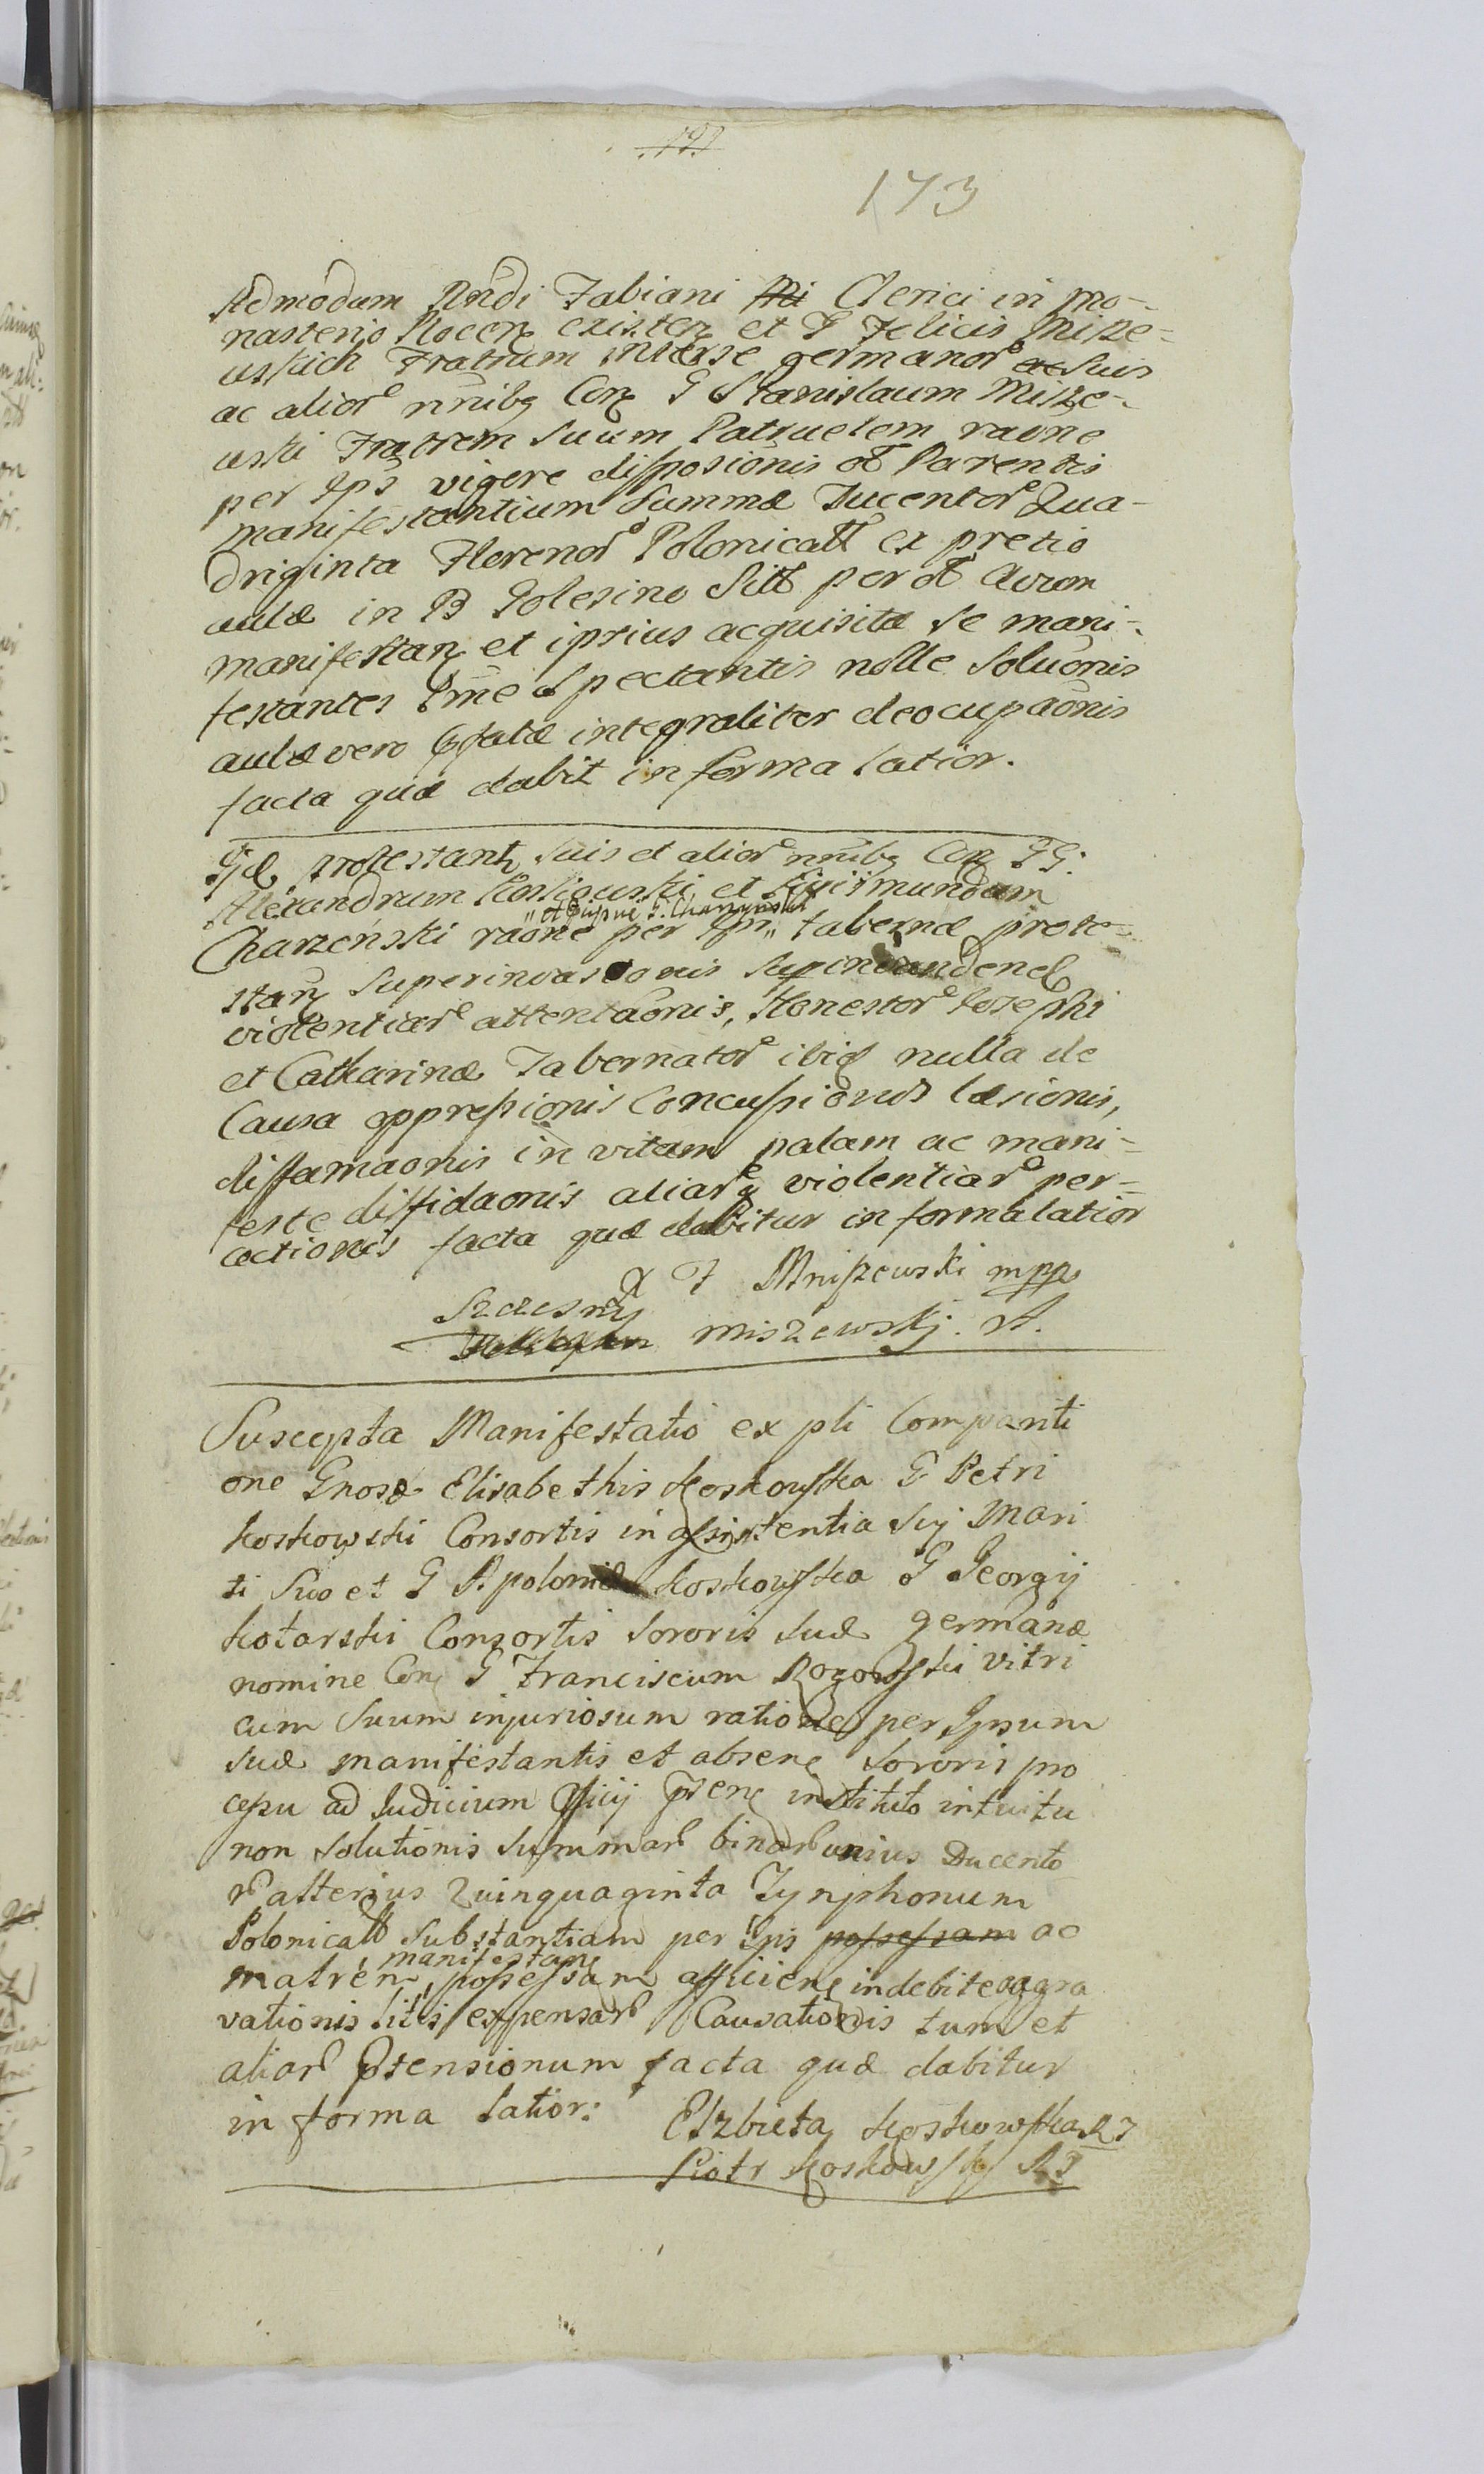 173
Admodum Rndi Fabiani Clerici in mo-
nasterio Plocen existen et G Felicis Misze-
wskich Fratrum interse germanor suis
ac alior nnibq Con G Stanislaum Misze-
wski Fratrem Suum Patruelem raone
per Ips vigore dispositionis ol Parentis
manifestantium Summæ Ducentor Qua-
driginta Florenor Polonicall ex pretio
aulæ in B Golesino Sitt per ol Avum
manifestan et iprius acquisitæ se mani-
festantes Pme Spectantis nolle Soluonis
aulæ vero pfatæ integraliter deocupaonis
facta quæ dabit in forma latior.
Iid protestant suis et alior nnibq Con GG:
Alexandrum Kossowski et Sigismundum
" et Gnęsue G. Charzynski
Charzeński raone per Ips " tabernæ prote-
stan Superinvasionis Superinde
violentiar attentaonis, Honestor Josephi
et Catharinæ Tabernator ibid nulla de
Causa oppressionis Concussionis læsionis,
diffamaonis in vitam palam ac mani-
feste diffidaonis aliarq violentiar per-
actionis facta quæ dabitur in forma latior
X F Mniszewski mpp
Szczesny
miszewskj. A.
Suscepta Manifestatio ex pli Compariti
one Gnosæ Elisabethis Koskowska G Petri
Koskowski Consortis in assistentia Sui Mari
ti Suo et G Apoloniæ Koskowska G Georgij
Kotarski Consortis Sororis Suæ germanæ
nomine Con G Franciscum Rogowski vitri
cum Suum injuriosum ratione per Ipsum
suæ manifestantis et absen Sororis pro
cessu ad Judicium Officij Psens instituto intuitu
non Solutionis Summar binar unius Ducento
r alterius Quinquaginta Tynphonum
Polonicall Substantiam per Ips possessam ac
manifestan
matrem, possessam afficien indebite aggra
vationis litis expensar Causationis tum et
aliar Ptensionum facta quæ dabitur
in forma latior:
Elzbieta Koskowska A J
Piotr Koskowsky A J